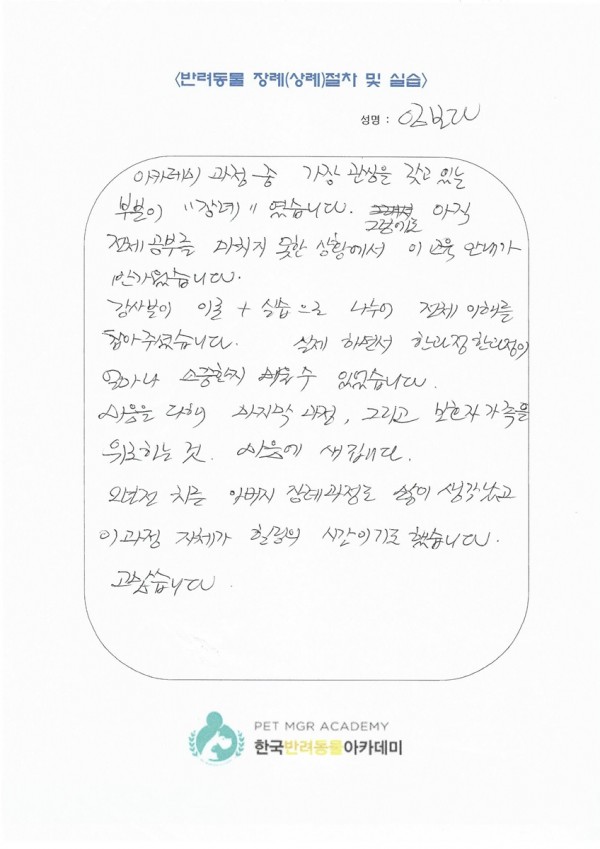 <반려동물 장례(상례)절차 및 실습>
성명 : 임보다
아카데미 과정 중 가장 관심을 갖고 있는
부분이 "장례" 였습니다. 그래서 그렇기도 아직
전체 공부를 마치지 못한 상황에서 이 교육 안내가
반가웠습니다.
강사분이 이론 + 실습으로 나누어 전체 이해를
잡아주셨습니다. 실제 하면서 한과정 한과정이
얼마나 소중한지 배울 수 있었습니다.
마음을 다해 마지막 과정, 그리고 보호자 가족을
위로하는 것. 마음에 새깁니다.
치른 아버지 장례과정도 많이 생각났고
이 과정 자체가 힐링의 시간이기도 했습니다.
고맙습니다.
PET MGR ACADEMY
한국반려동물아카데미